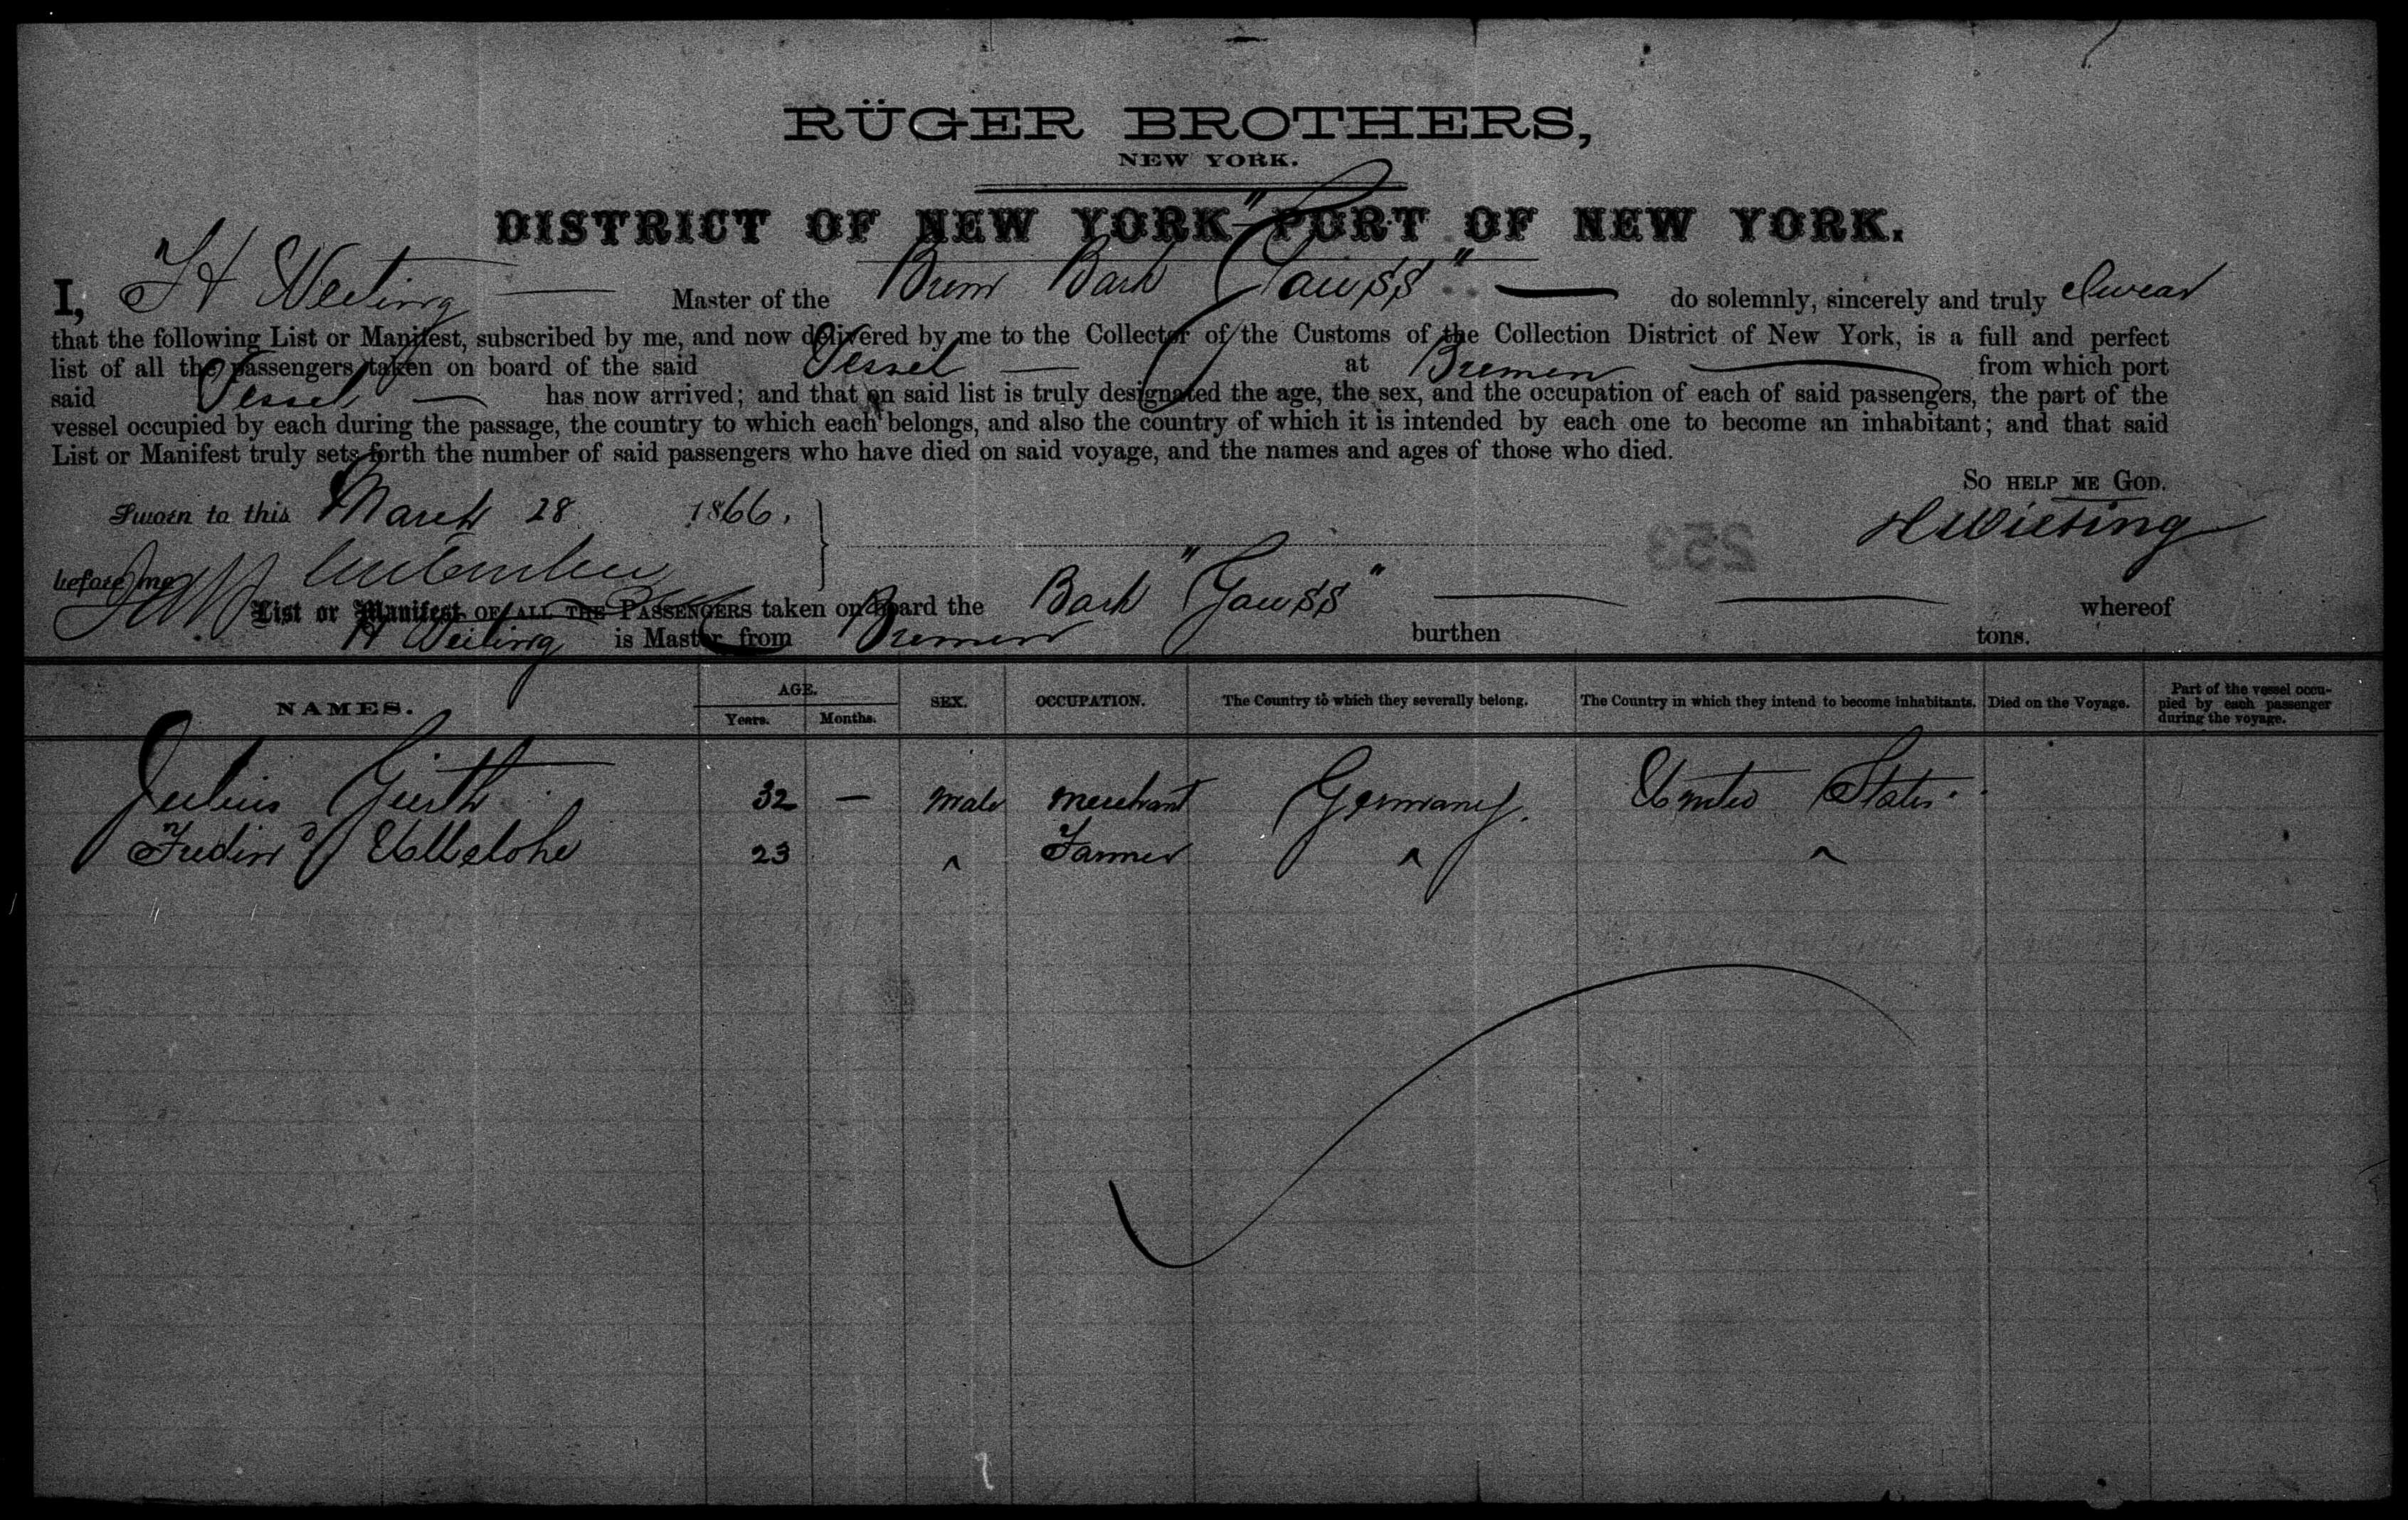 RÜGER BROTHERS,
NEW YORK.
DISTRICT OF NEW YORK—PORT OF NEW YORK.
I, H Wieting Master of the Brem Bark "Gauss" do solemnly, sincerely and truly swear
that the following List or Manifest, subscribed by me, and now delivered by me to the Collector of the Customs of the Collection District of New York, is a full and perfect
list of all the passengers taken on board of the said Vessel at Bremen from which port
said Vessel has now arrived; and that on said list is truly designated the age, the sex, and the occupation of each of said passengers, the part of the
vessel occupied by each during the passage, the country to which each belongs, and also the country of which it is intended by each one to become an inhabitant; and that said
List or Manifest truly sets forth the number of said passengers who have died on said voyage, and the names and ages of those who died.
SO HELP ME GOD.
Sworn to this March 28 1866.
H Wieting
253
before me
List or Manifest OF ALL THE PASSENGERS taken on board the Bark "Gauss" whereof
H Wieting is Master, from Bremen burthen tons.
NAMES. AGE. Years. Months. SEX. OCCUPATION. The Country to which they severally belong. The Country in which they intend to become inhabitants. Died on the Voyage. Part of the vessel occupied by each passenger during the voyage.
Julius Gürth 32 — male merchant Germany. United States.
23 " Farmer " "